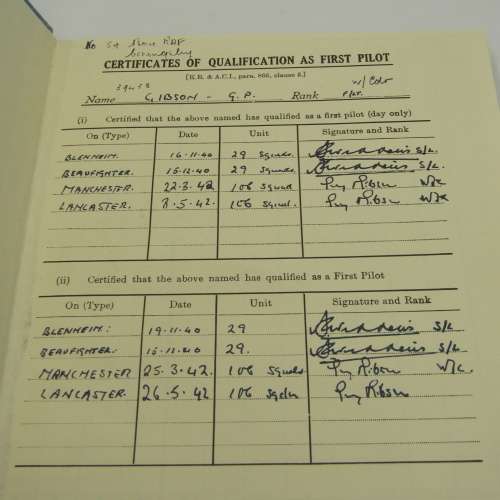 No 54 RAF
CERTIFICATES OF QUALIFICATION AS FIRST PILOT
[K.R. & A.C.I., para. 866, clause 8.]
39438 W/Cdr
Name GIBSON - G.P. Rank F/Lt.
(i) Certified that the above named has qualified as a first pilot (day only)
On (Type) Date Unit Signature and Rank
BLENHEIM 16.11.40 29 Squdn. S/L.
BEAUFIGHTER. 15.12.40 29 Squdn. S/L.
MANCHESTER 22.3.42 106 Squad Guy Gibson W/C
LANCASTER. 8.5.42. 106 Squd. Guy Gibson W/C
(ii) Certified that the above named has qualified as a First Pilot
On (Type) Date Unit Signature and Rank
BLENHEIM: 19.11.40 29 S/L
BEAUFIGHTER. 29. S/L.
MANCHESTER 25.3.42. 106 Squdn Guy Gibson W/C.
LANCASTER. 26.5.42 106 Sqdn Guy Gibson